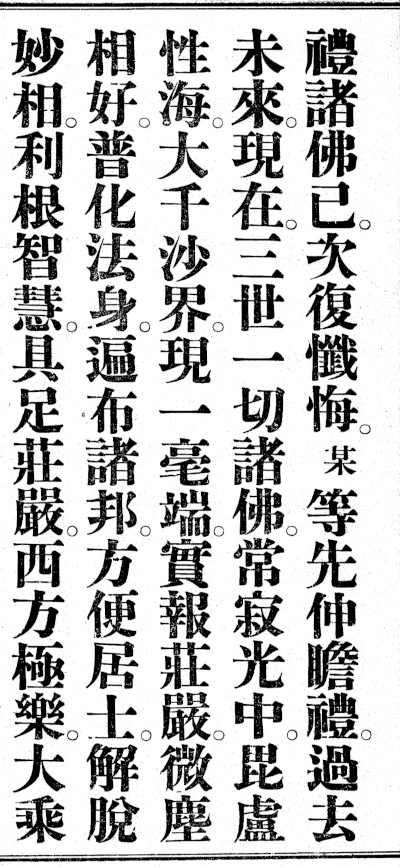 禮諸佛已。次復懺悔。某等先伸瞻禮。過去
未來。現在。三世一切諸佛。常寂光中。毘盧
性海。大千沙界。現一毫端。實報莊嚴。微塵
相好。普化法身。遍布諸邦。方便居士。解脫
妙相。利根智慧。具足莊嚴。西方極樂。大乘